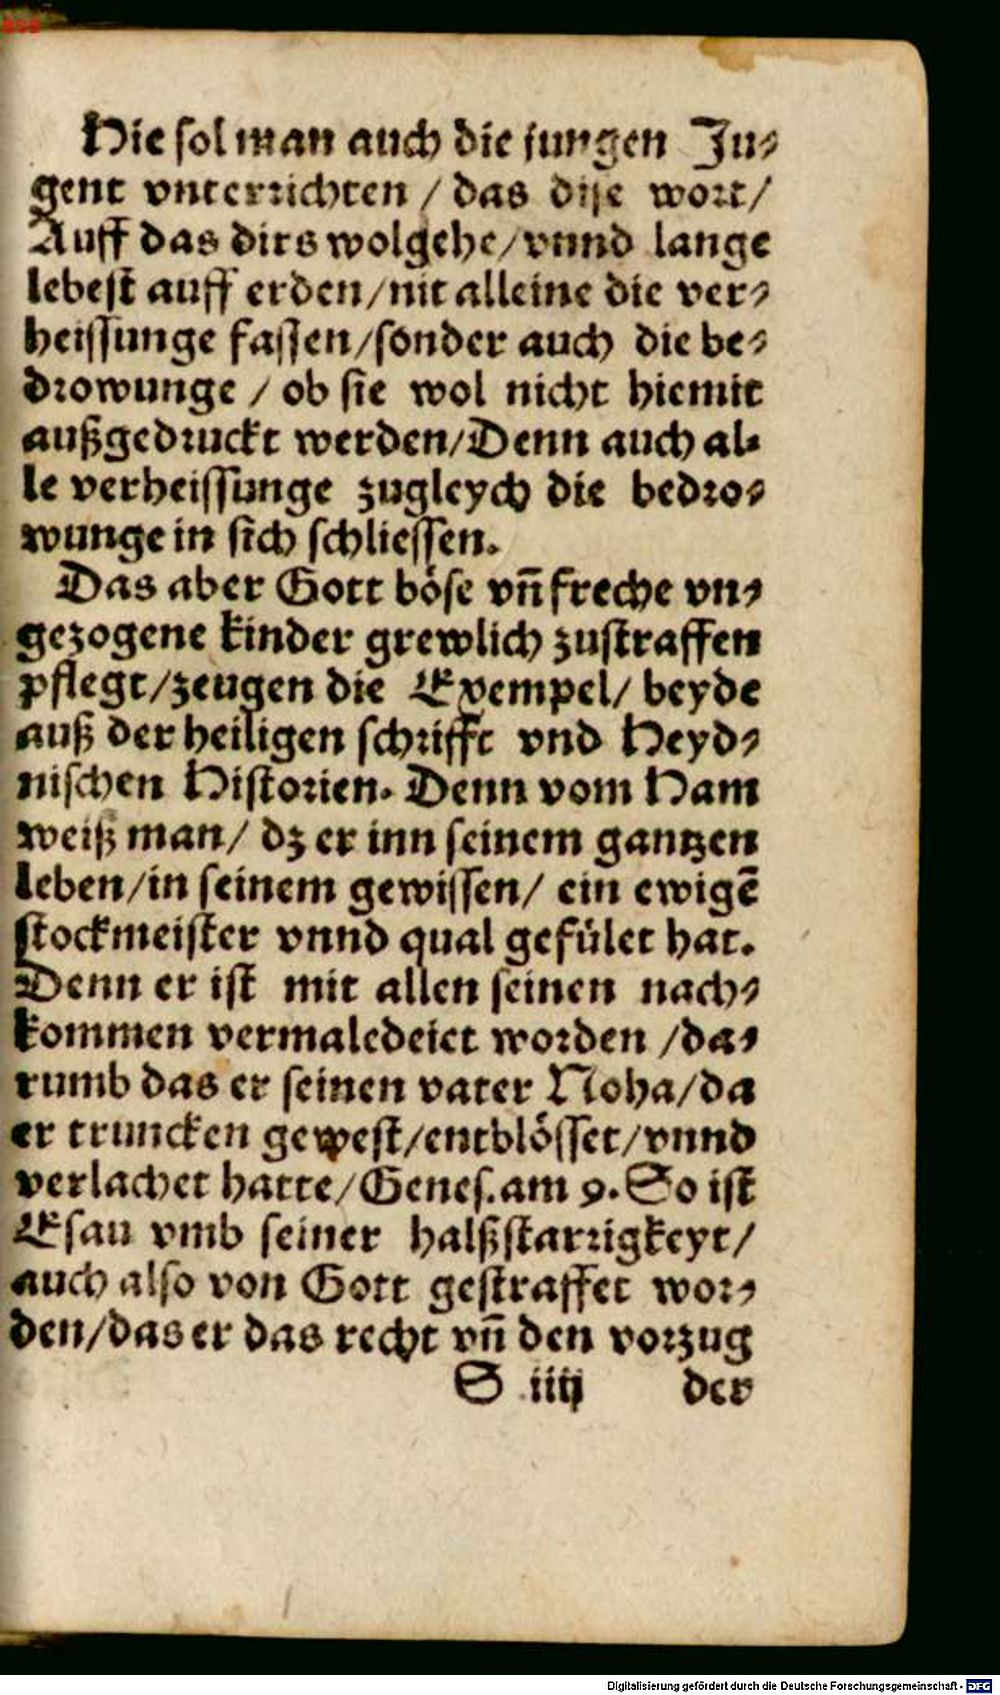 Hie sol man auch die jungen Ju⸗
gent vnterrichten / das dise wort/
Auff das dirs wolgehe/vnnd lange
lebest auff erden/nit alleine die ver⸗
heissunge fassen/sonder auch die be⸗
drowunge / ob sie wol nicht hiemit
außgedruckt werden/Denn auch al⸗
le verheissunge zugleych die bedro⸗
wunge in sich schliessen.
Das aber Gott böse vn̄ freche vn⸗
gezogene kinder grewlich zustraffen
pflegt/zeugen die Exempel/ beyde
auß der heiligen schrifft vnd Heyd⸗
nischen Historien. Denn vom Ham
weiß man/ dz er inn seinem gantzen
leben/in seinem gewissen/ ein ewigē
stockmeister vnnd qual gefület hat.
Denn er ist mit allen seinen nach⸗
kommen vermaledeiet worden /da⸗
rumb das er seinen vater Noha/da
er truncken gewest/entblösset/vnnd
verlachet hatte/Genes. am 9. So ist
Esau vmb seiner halßstarrigkeyt/
auch also von Gott gestraffet wor⸗
den/das er das recht vn̄ den vorzug
S iiij der
Digitalisierung gefördert durch die Deutsche Forschungsgemeinschaft - DFG